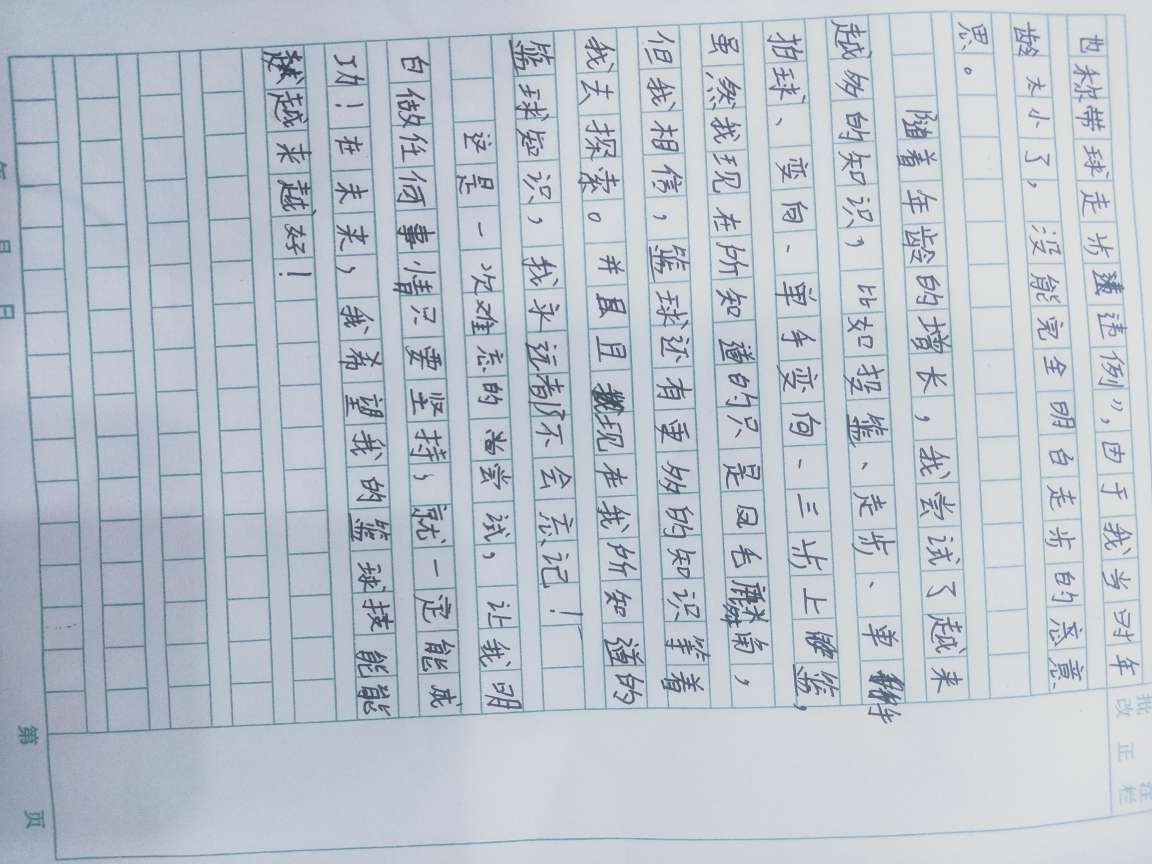 也称带球走步违例”,因于我当时年
龄太小了,没能完全明白走步的意
思。
随着年龄的增长,我尝试了越来
越多的知识,比如投篮、走步、单手
拍球、变向、单手变向、三步上篮,
虽然我现在所知道的只是毛麟角,
但我相信,篮球还有更多的知识等着
我去探索。并且且现在我所知道的
篮球知识,我永远都不会忘记!
这是一次难忘的尝试,让我明
白做任何事情只要坚持,就一定能成
功!在未来,我希望我的篮球技能能
越来越好!
年 月 日
第 页